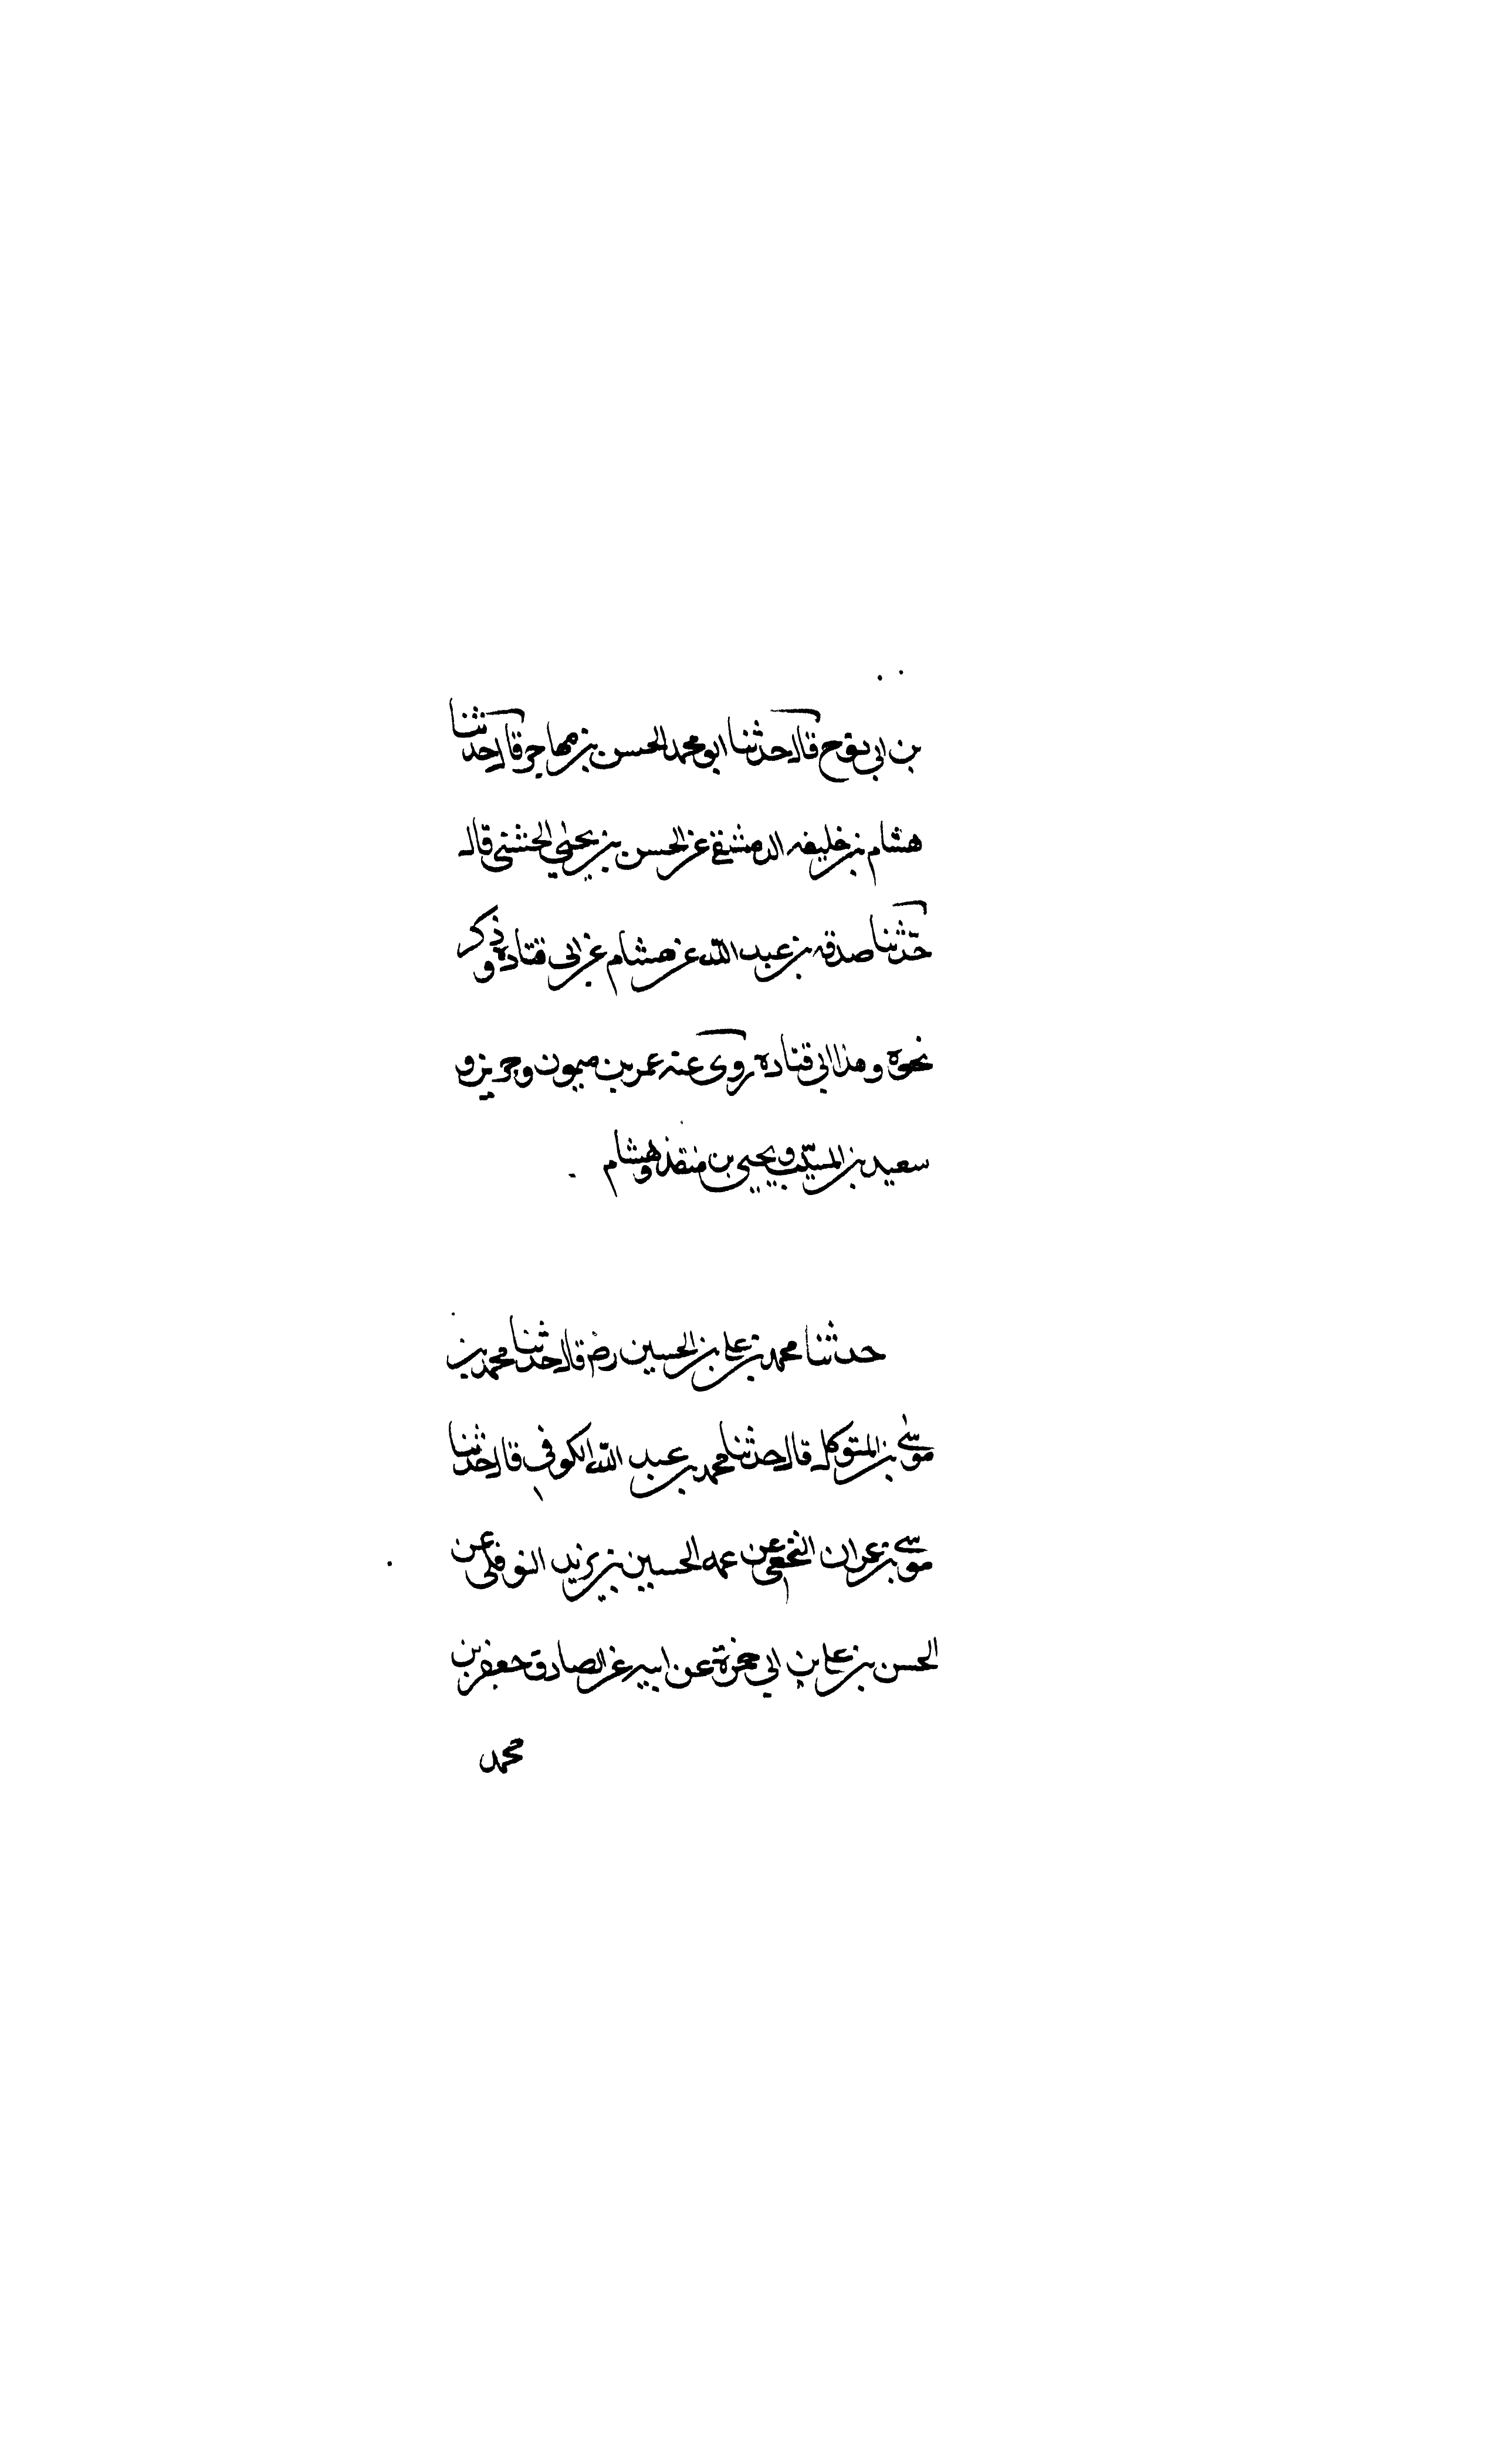 بن ابي نوح قال حدثنا ابو محمد الحسن بن مهاجر قال حدثنا
هشام بن خليفه الدمشقى عن الحسن بن يحيى الخشنى قال
حدّثنا صدقه بن عبد الله عن هشام عن ابى قتادة و ذكر
نحوه و هذا ابي قتادة روى عنه عمر بن ميمون و جرير و
سعيد بن المسيّب و يحيى بن منقذ و هشام
حدثنا محمد بن على بن الحسين رض قال حدثنا محمد بن
موسى بن المتوكل قال حدثنا محمد بن عبد الله الكوفي قال حدثنا
موسى بن عمران النخعي عن عمه الحسين بن يزيد النوفلى عن
الحسن بن على بن ابي حمزة عن ابيه عن الصادق جعفر بن
محمد